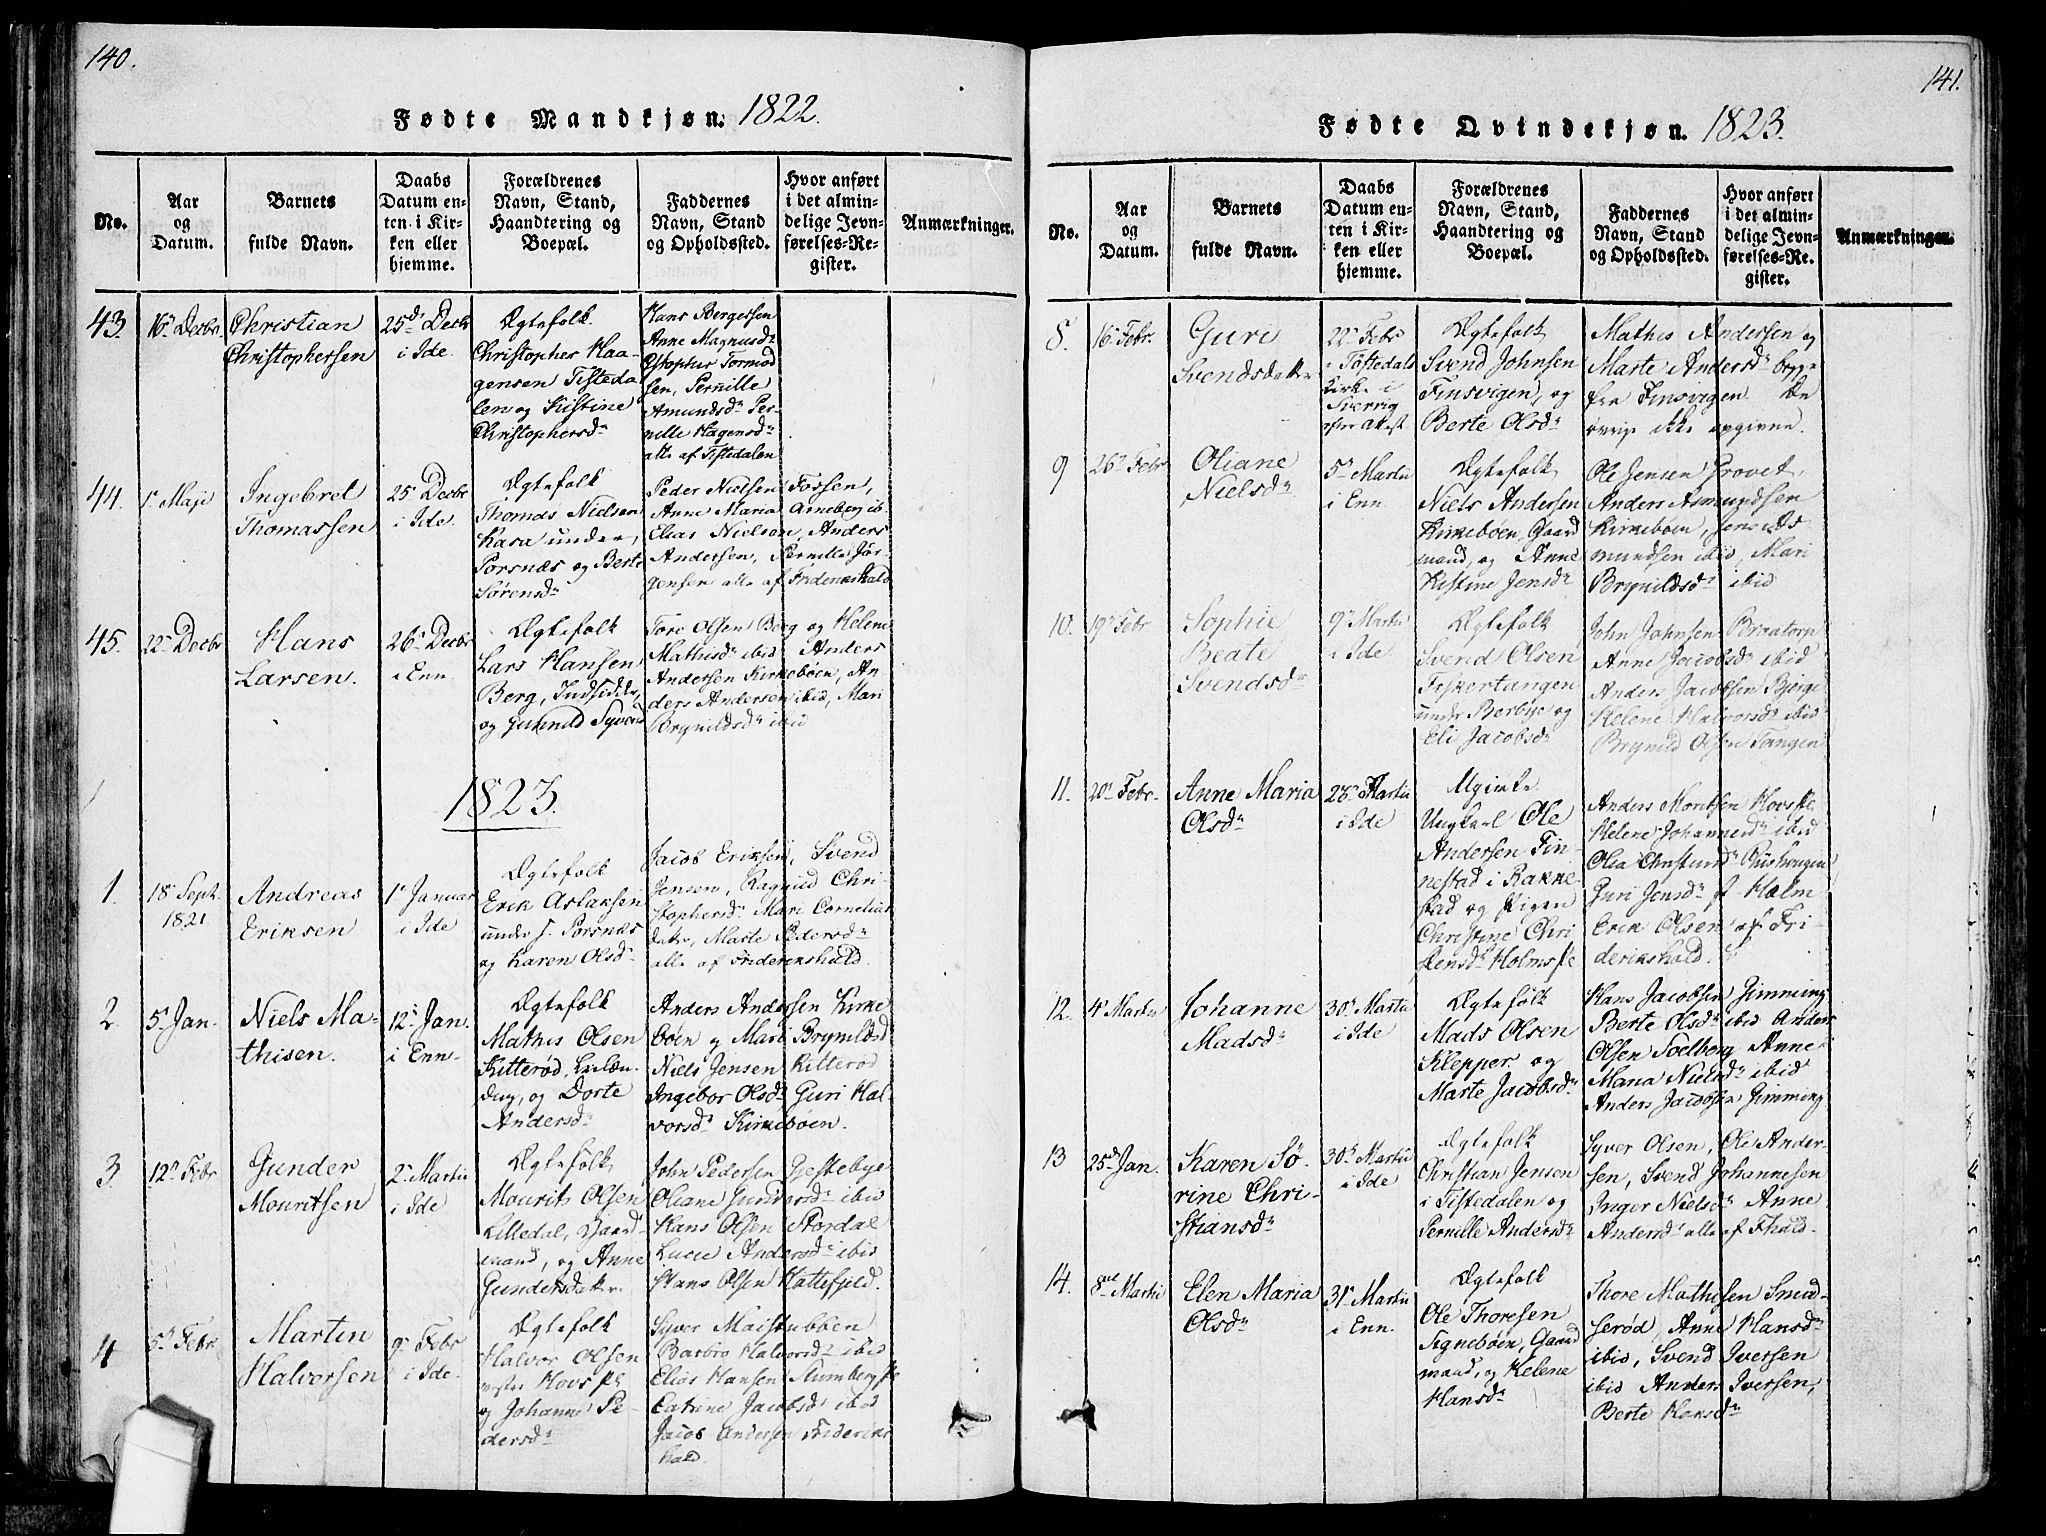 140.
Fødte Mandkjøn. 1822.
No.
Aar
og
Datum.
Barnets
fulde Navn.
Daabs
Datum en-
ten i Kir-
ken eller
hjemme.
Forældrenes
Navn, Stand,
Haandtering og
Boepæl.
Faddernes
Navn, Stand
og Opholdssted.
Hvor anført
i det almin-
delige Jevn-
førelses-Re-
gister.
Anmærkninger.
43.
16de Decbr.
Christian
Christophersen
25de Decbr
i Ide.
Ægtefolk
Christopher Haa-
gensen Tisteda-
len og Kistine
Christophersdr
Hans Børgessen
Anne Magnusdr
Christopher Tormod
sen, Pernille
Amundsdr Per-
nille Hagensdr
alle af Tistedalen
44.
1 Maji
Ingebret
Thomassen
25 Decbr
i Ide.
Ægtefolk
Thomas Nielsen
Kasa under
Porsnæs og Berte
Sørensdr
Peder Nielsen Fossen,
Anne Maria Arneberg ib.
Elias Nielsen, Anders
Andersen, Pernille Jør-
gensen alle af Friderikshald
45.
22 Decbr
Hans
Larsen.
26 Decbr
i Enn.
Ægtefolk
Lars Hansen
Berg, Indsidder,
og Gunnild Syversdr
Tore Olsen Berg og Helene
Mathisdr ibid Anders
Andersen Kirkebøen, An
ders Andersen ibid, Mari
Brynildsdr ibid
1823.
1.
18 Septr.
1821
Andreas
Eriksen
1 Januar
i Ide
Ægtefolk
Erik Aslaksen
under Porsnæs
og Karen Olsdr
Jacob Eriksen, Svend
Jensen, Ragnild Chri-
stophersdr Mari Cornelius
datter, Marte Pedersdr
alle af Friderikshald.
2
5 Jan.
Niels Ma-
thisen.
12 Jan.
i Enn.
Ægtefolk
Mathis Olsen
Kitterød,
og Dorte
Andersdr
Anders Andersen Kirke
bøen og Mari Brynildsd
Niels Jensen Kitterød
Ingebor Olsdr Guri Hal
vorsdr Kirkebøen.
3.
12 Febr
Gunder
Mouritsen
2 Martii
i Ide
Ægtefolk
Mourits Olsen
Lilledal, Gaard
mand, og Anne
Gundersdatter
John Pedersen Gjestebye
Oliane Gundersdr ibid
Hans Olsen Stordal
Lucie Andersdr ibid
Hans Olsen Hattefjeld.
4
5 Febr.
Martin
Halvorsen
9 Febr
i Ide.
Ægtefolk
Halvor Olsen
Hovs pl.
og Johanne Pe-
dersdr
Syver Maistubben
Barbro Halvorsdr ibid
Elias Hansen Stumberg pl
Catrine Jacobsdr ibid
Jacob Andersen Frideriks
hald
141.
Fødte Qvindekjøn. 1823.
No.
Aar
og
Datum.
Barnets
fulde Navn.
Daabs
Datum en-
ten i Kir-
ken eller
hjemme.
Forældrenes
Navn, Stand,
Haandtering og
Boepæl.
Faddernes
Navn, Stand
og Opholdssted.
Hvor anført
i det almin-
delige Jevn-
førelses-Re-
gister.
Anmærkninger.
8.
16 Febr.
Guri
Svendsdatter
22 Febr
i Töftedals
Kirke i
Sverrig
efter Attest
Ægtefolk
Svend Johnsen
Finsvigen, og
Berte Olsdr
Mathis Andersen og
Marte Andersdr begge
fra Finsvigen De
øvrige ikke opgivne.
9
26 Febr
Oliane
Nielsdr
5 Martii
i Enn
Ægtefolk
Niels Andersen
Kirkebøen, Gaard
mand, og Anne
Kistine Jensdr
Ole Jensen Provet,
Anders Asmundsen
Kirkebøen, Jens As
mundsen ibid, Mari
Brynildsdr ibid
10.
19 Febr
Sophie
Beate
Svendsdr
9 Martii
i Ide
Ægtefolk
Svend Olsen
Fiskertangen
under Berbye og
Eli Jacobsdr
John Johnsen Braatorp
Anne Jacobsdr ibid
Anders Jacobsen Bjerge
Helene Halvorsdr ibid
Brynild Olsen Tangen
11.
20 Febr.
Anne Maria
Olsdr
28 Martii
i Ide
Ugivte
Ungkarl Ole
Andersen Fin-
nestad i Rakke-
stad og Pigen
Christine Chri
stensdr Holms pl
Anders Moritsen Hovs pl.
Helene Johannesdr ibid
Olia Christiansdr
Guri Jensdr Holm
Erik Olsen af Fri-
derikshald.
12.
4 Martii
Johanne
Madsdr
30 Martii
i Ide
Ægtefolk
Mads Olsen
Klepper og
Marte Jacobsdr
Hans Jacobsen Gimming
Berte Olsdr ibid Anders
Olsen Soelberg Anne
Maria Nielsdr ibid
Anders Jacobsen Gimming
13
25 Jan.
Karen Sø-
rine Chri-
stiansdr
30 Martii
i Ide
Ægtefolk
Christian Jensen
i Tistedalen og
Pernille Andersdr
Syver Olsen, Ole Ander-
sen, Svend Johannesen
Inger Nielsdr Anne
Andersdr alle af Fhald.
14.
8de Martii
Elen Maria
Olsdr
31 Martii
i Enn.
Ægtefolk
Ole Thoresen
Signebøen, Gaard
mand, og Helene
Hansdr
Thore Mathisen Smed-
serød, Anne Hansdr
ibid, Svend Iversen
ibid Anders Iversen,
Berte Hansdr